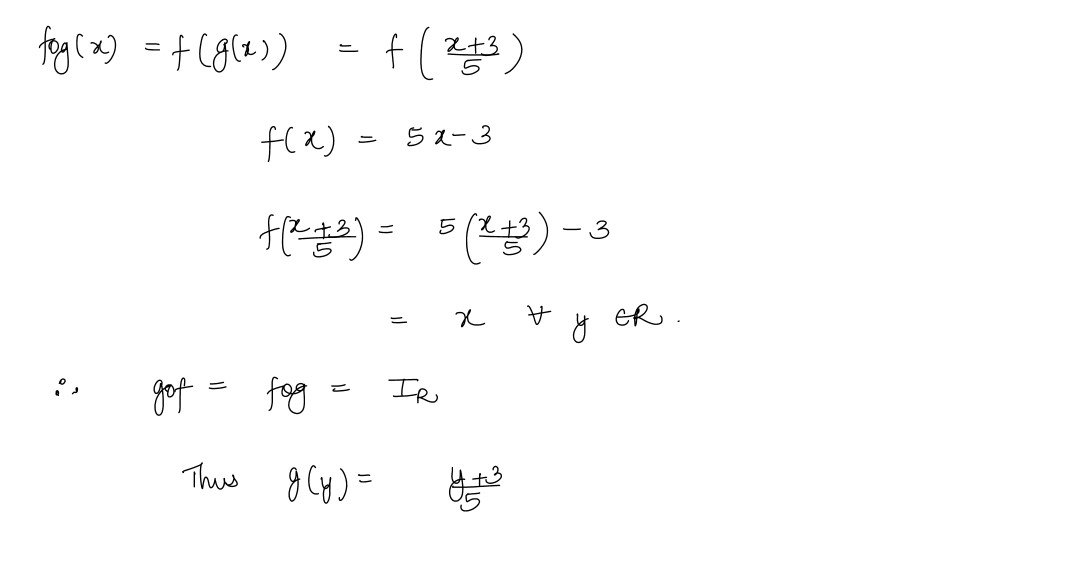 fog(x) = f(g(x)) = f((x+3)/5)
f(x) = 5x-3
f((x+3)/5) = 5((x+3)/5) - 3
= x ∀ y ∈R.
∴ gof = fog = I_R
Thus g(y) = (y+3)/5